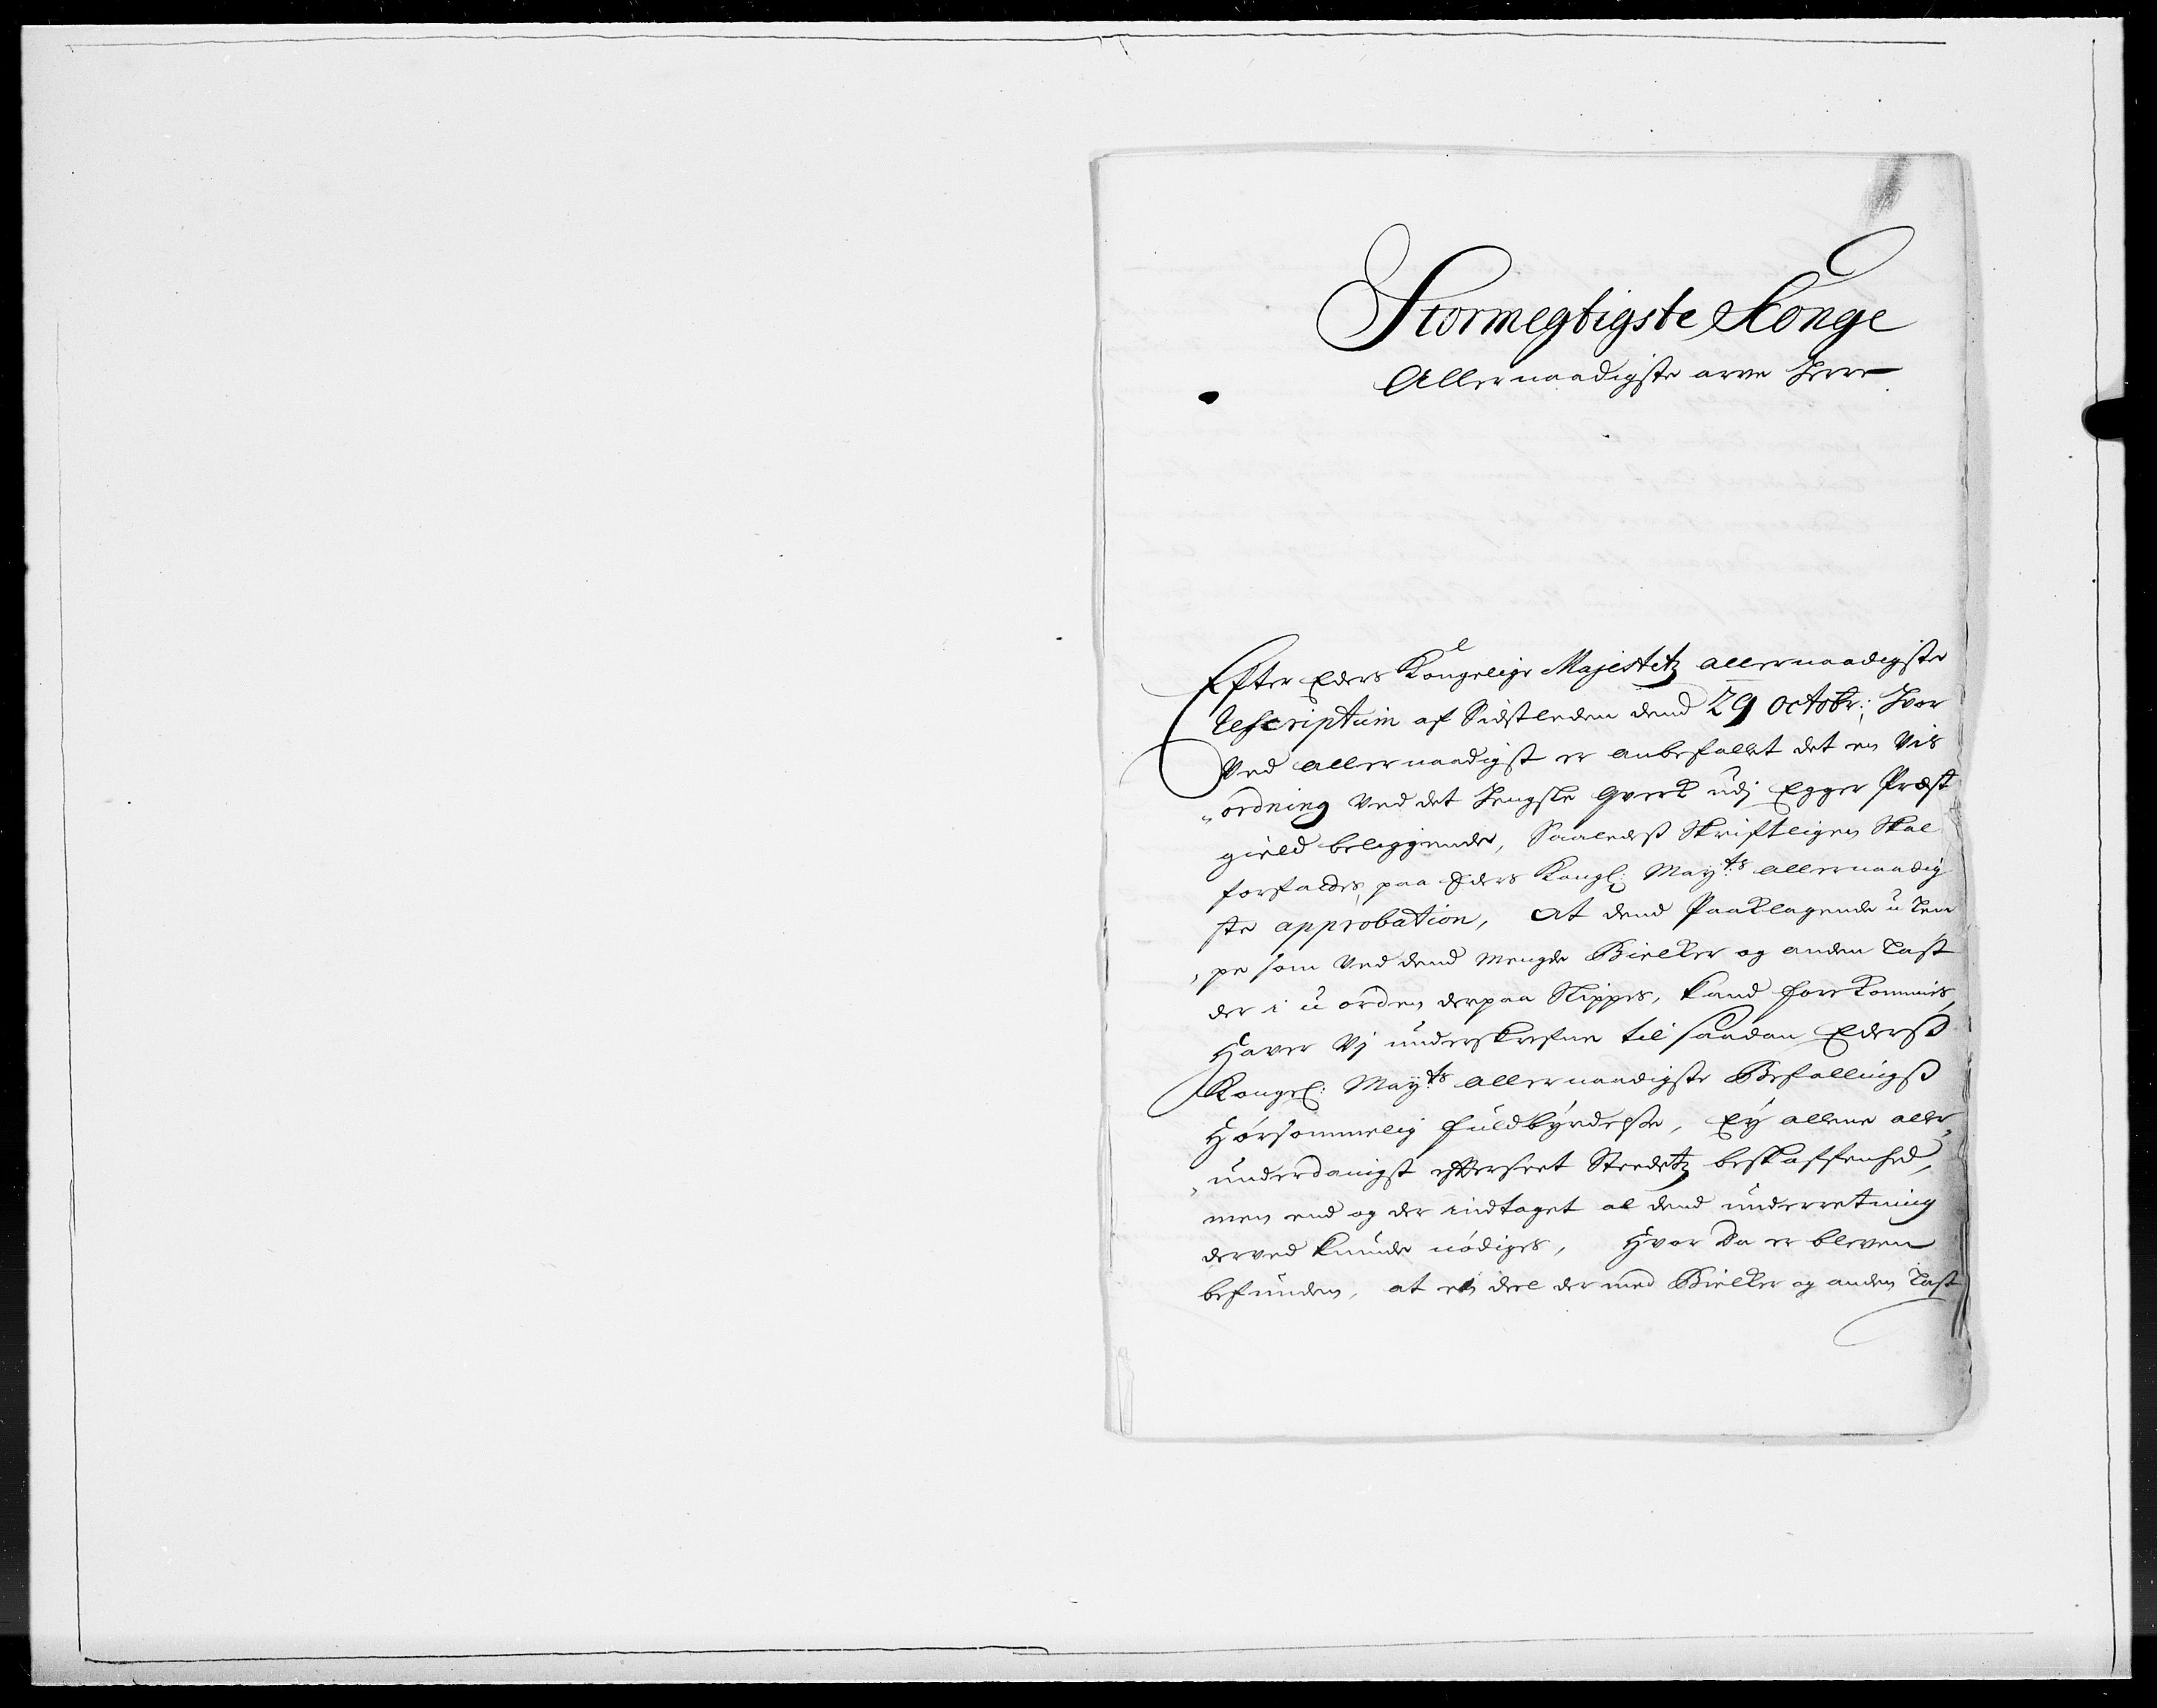 Stormegtigste Konge
Allernaadigste arve Herre
Efter Eders Kongelige Majestetz allernaadigste
Rescriptum af Sidstleden dend 29 octobr: hvor
Ved allernaadigst er anbefallet det en Vis
ordning Ved det Hengsle qverk udj Egger Præst
gield beliggende, Saaledeß Skriftligen Skal
forfaedis, paa Eders Kongl: Mayts allernaadig
ste approbation, at dend Paaklagende u Lem
pe som Ved dend mengde Bielker og anden Last
der i u orden derpaa Slippes, kand forekommis,
Haver Vj underskrefne til saadan Ederß
Kongel: Mayts allernaadigste Befallingß
Hørsommelig fuldbyrdelße, Ey allene aller
underdanigst effterseet Stedetz beskaffenhed,
men end og der indtaget al dend underretning
derved kunde nødiges, Hvor Da er bleven
befunden, at en deel der med Bielker og anden Last